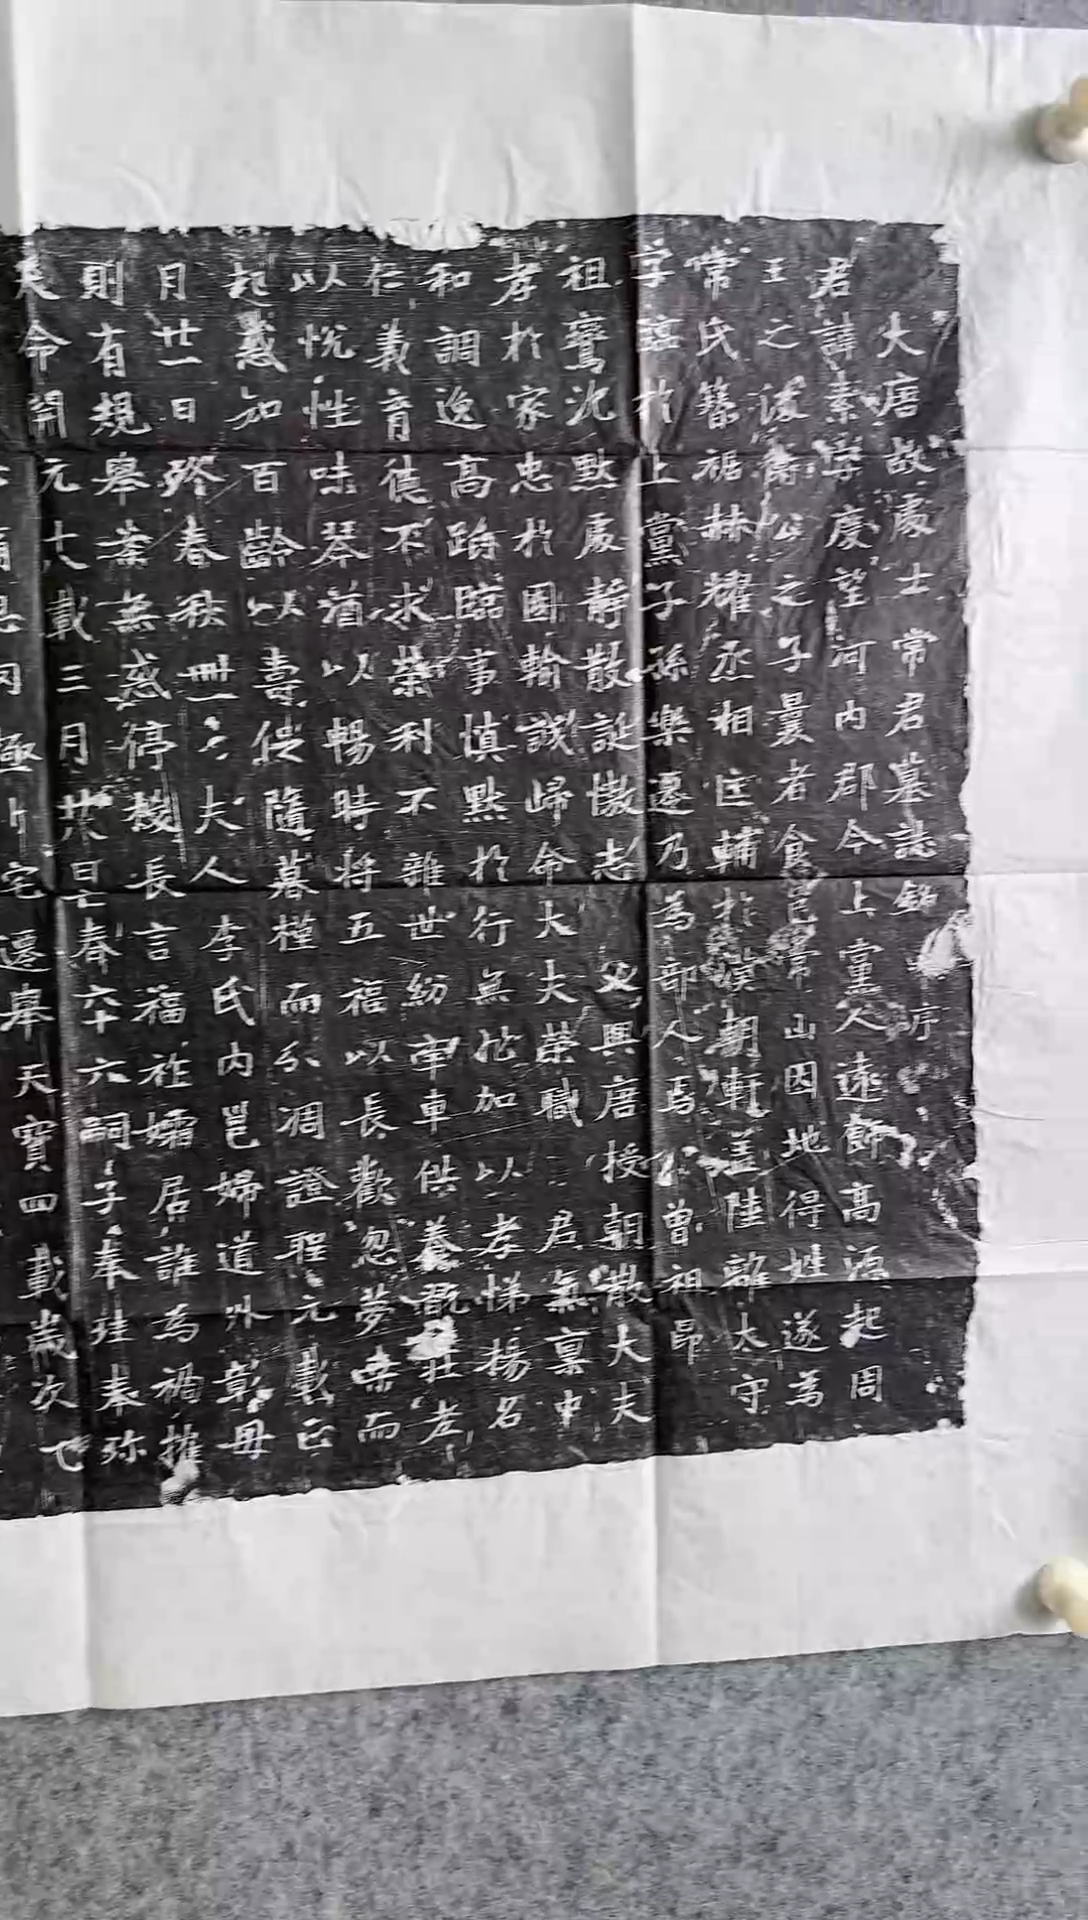 大唐故處士常君墓誌銘 序
君諱素字度望河内郡今上黨人遠飾高源起周
王之後衛公之子曩者食邑常山因地得姓遂為
常氏簪裾赫耀丞相匡輔於漢朝軒蓋陸離太守
字臨於上黨子孫樂遷乃為部人焉 曾祖昂
祖鸞沉默處静散誕慠志 父興唐授朝散大夫
孝於家忠於國輸誠歸命大夫榮職 君氣稟中
和調逸高踏臨事慎默於行無加以孝悌揚名
仁義育德不求榮利不雜世紛牢車供養 壯志
以悦性味琴酒以暢時將五福以長歡忽夢而
起惑知百齡以壽俟隨暮槿而凋證聖元載正
月廿一日終春秋卌六夫人李氏内邕婦道外彰母
則有規舉案無惑停機長言福祚孀居誰為禍摧
命開元十八載三月廿日亡春六十六嗣子奉珪奉弥
宅遷舉天寶四載歲次乙